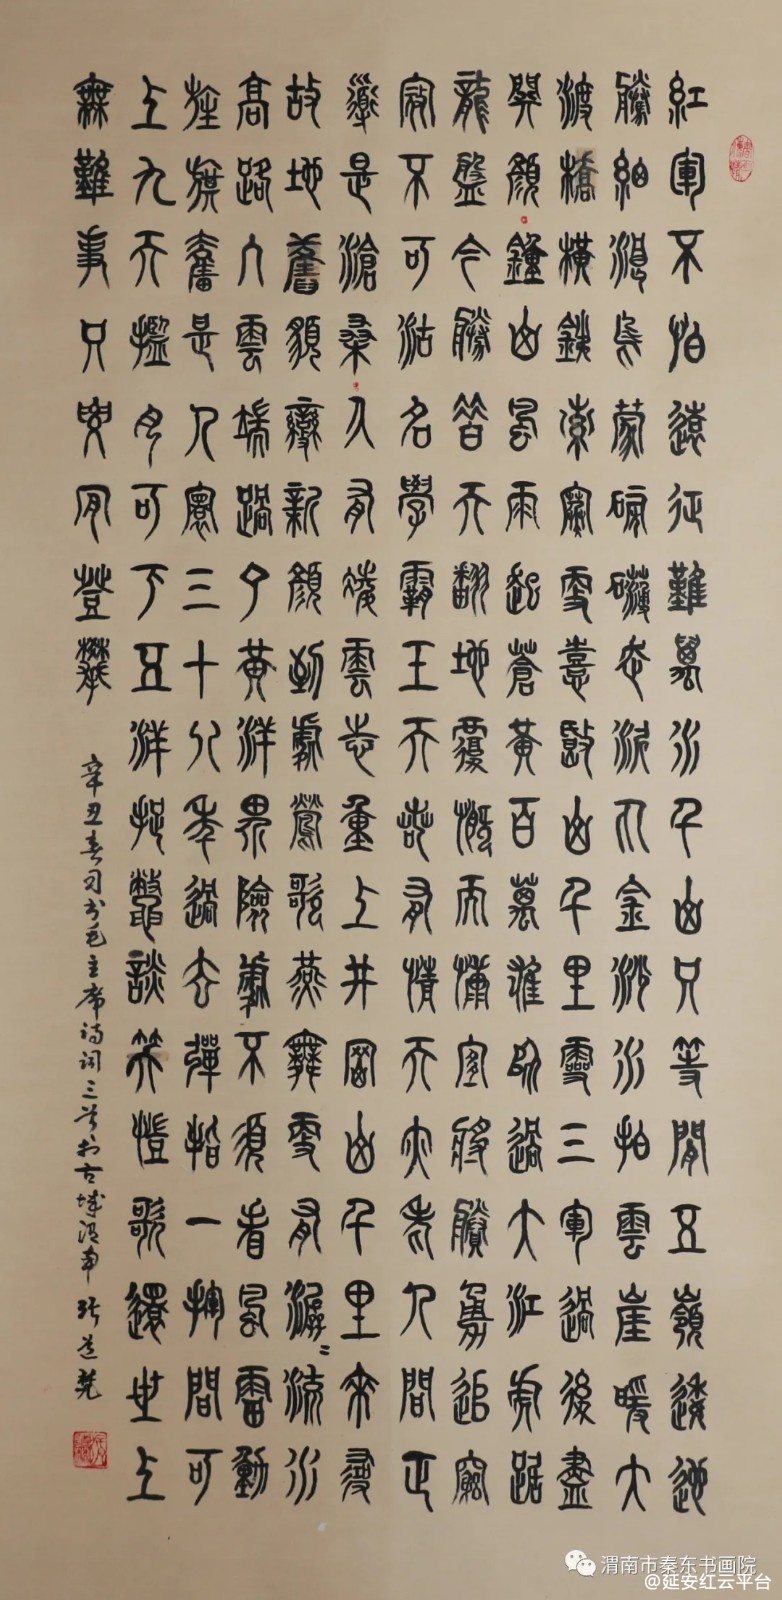 紅軍不怕遠征難萬水千山只等閒五嶺逶迤
騰細浪烏蒙磅礴走泥丸金沙水拍雲崖暖大
渡橋橫鐵索寒更喜岷山千里雪三軍過後盡
開顏鍾山風雨起蒼黃百萬雄師過大江虎踞
龍盤今勝昔天翻地覆慨而慷宜將賸勇追窮
寇不可沽名學霸王天若有情天亦老人間正
道是滄桑久有凌雲志重上井岡山千里來尋
故地舊貌變新顏到處鶯歌燕舞更有潺〻流水
高路入雲端過了黃洋界險處不須看風雷動
旌旗奮是人寰三十八年過去彈指一揮間可
上九天攬月可下五洋捉鱉談笑凱歌還世上
無難事只要肯登攀
辛丑春月书毛主席诗词三首於古城渭南
渭南市秦东书画院
@延安红云平台